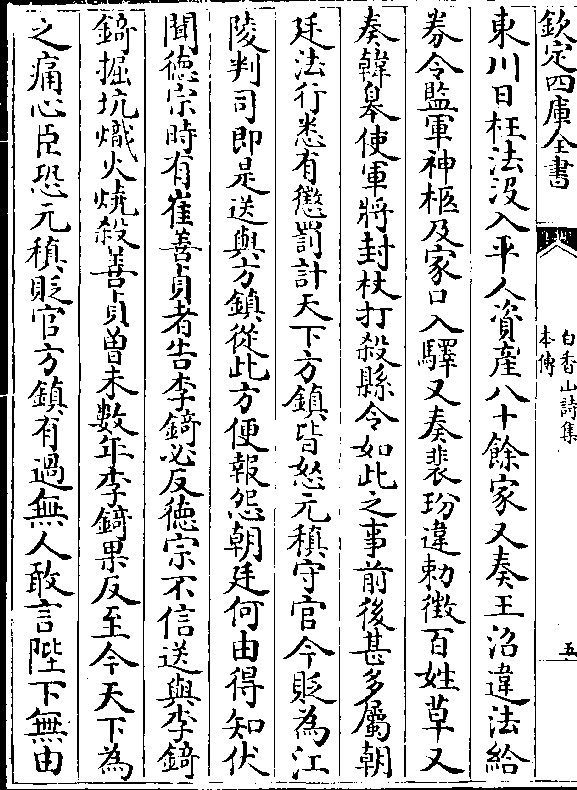 欽定四庫全書
白香山詩集
本傳
五
東川日枉法沒入平人資產八十餘家又奏王沿違法給
券令監軍神柩及家口入驛又奏裴玢違勅徵百姓草又
奏韓皋使軍將封杖打殺縣令如此之事前後甚多屬朝
廷法行悉有懲罰計天下方鎮皆怒元稹守官今貶為江
陵判司即是送與方鎮從此方便報怨朝廷何由得知伏
聞德宗時有崔善貞者告李錡必反德宗不信送與李錡
錡掘坑熾火燒殺善貞曾未數年李錡果反至今天下為
之痛心臣恐元稹貶官方鎮有過無人敢言陛下無由